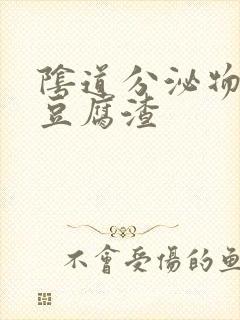 陰道分泌物
豆腐渣
不會受傷的魚